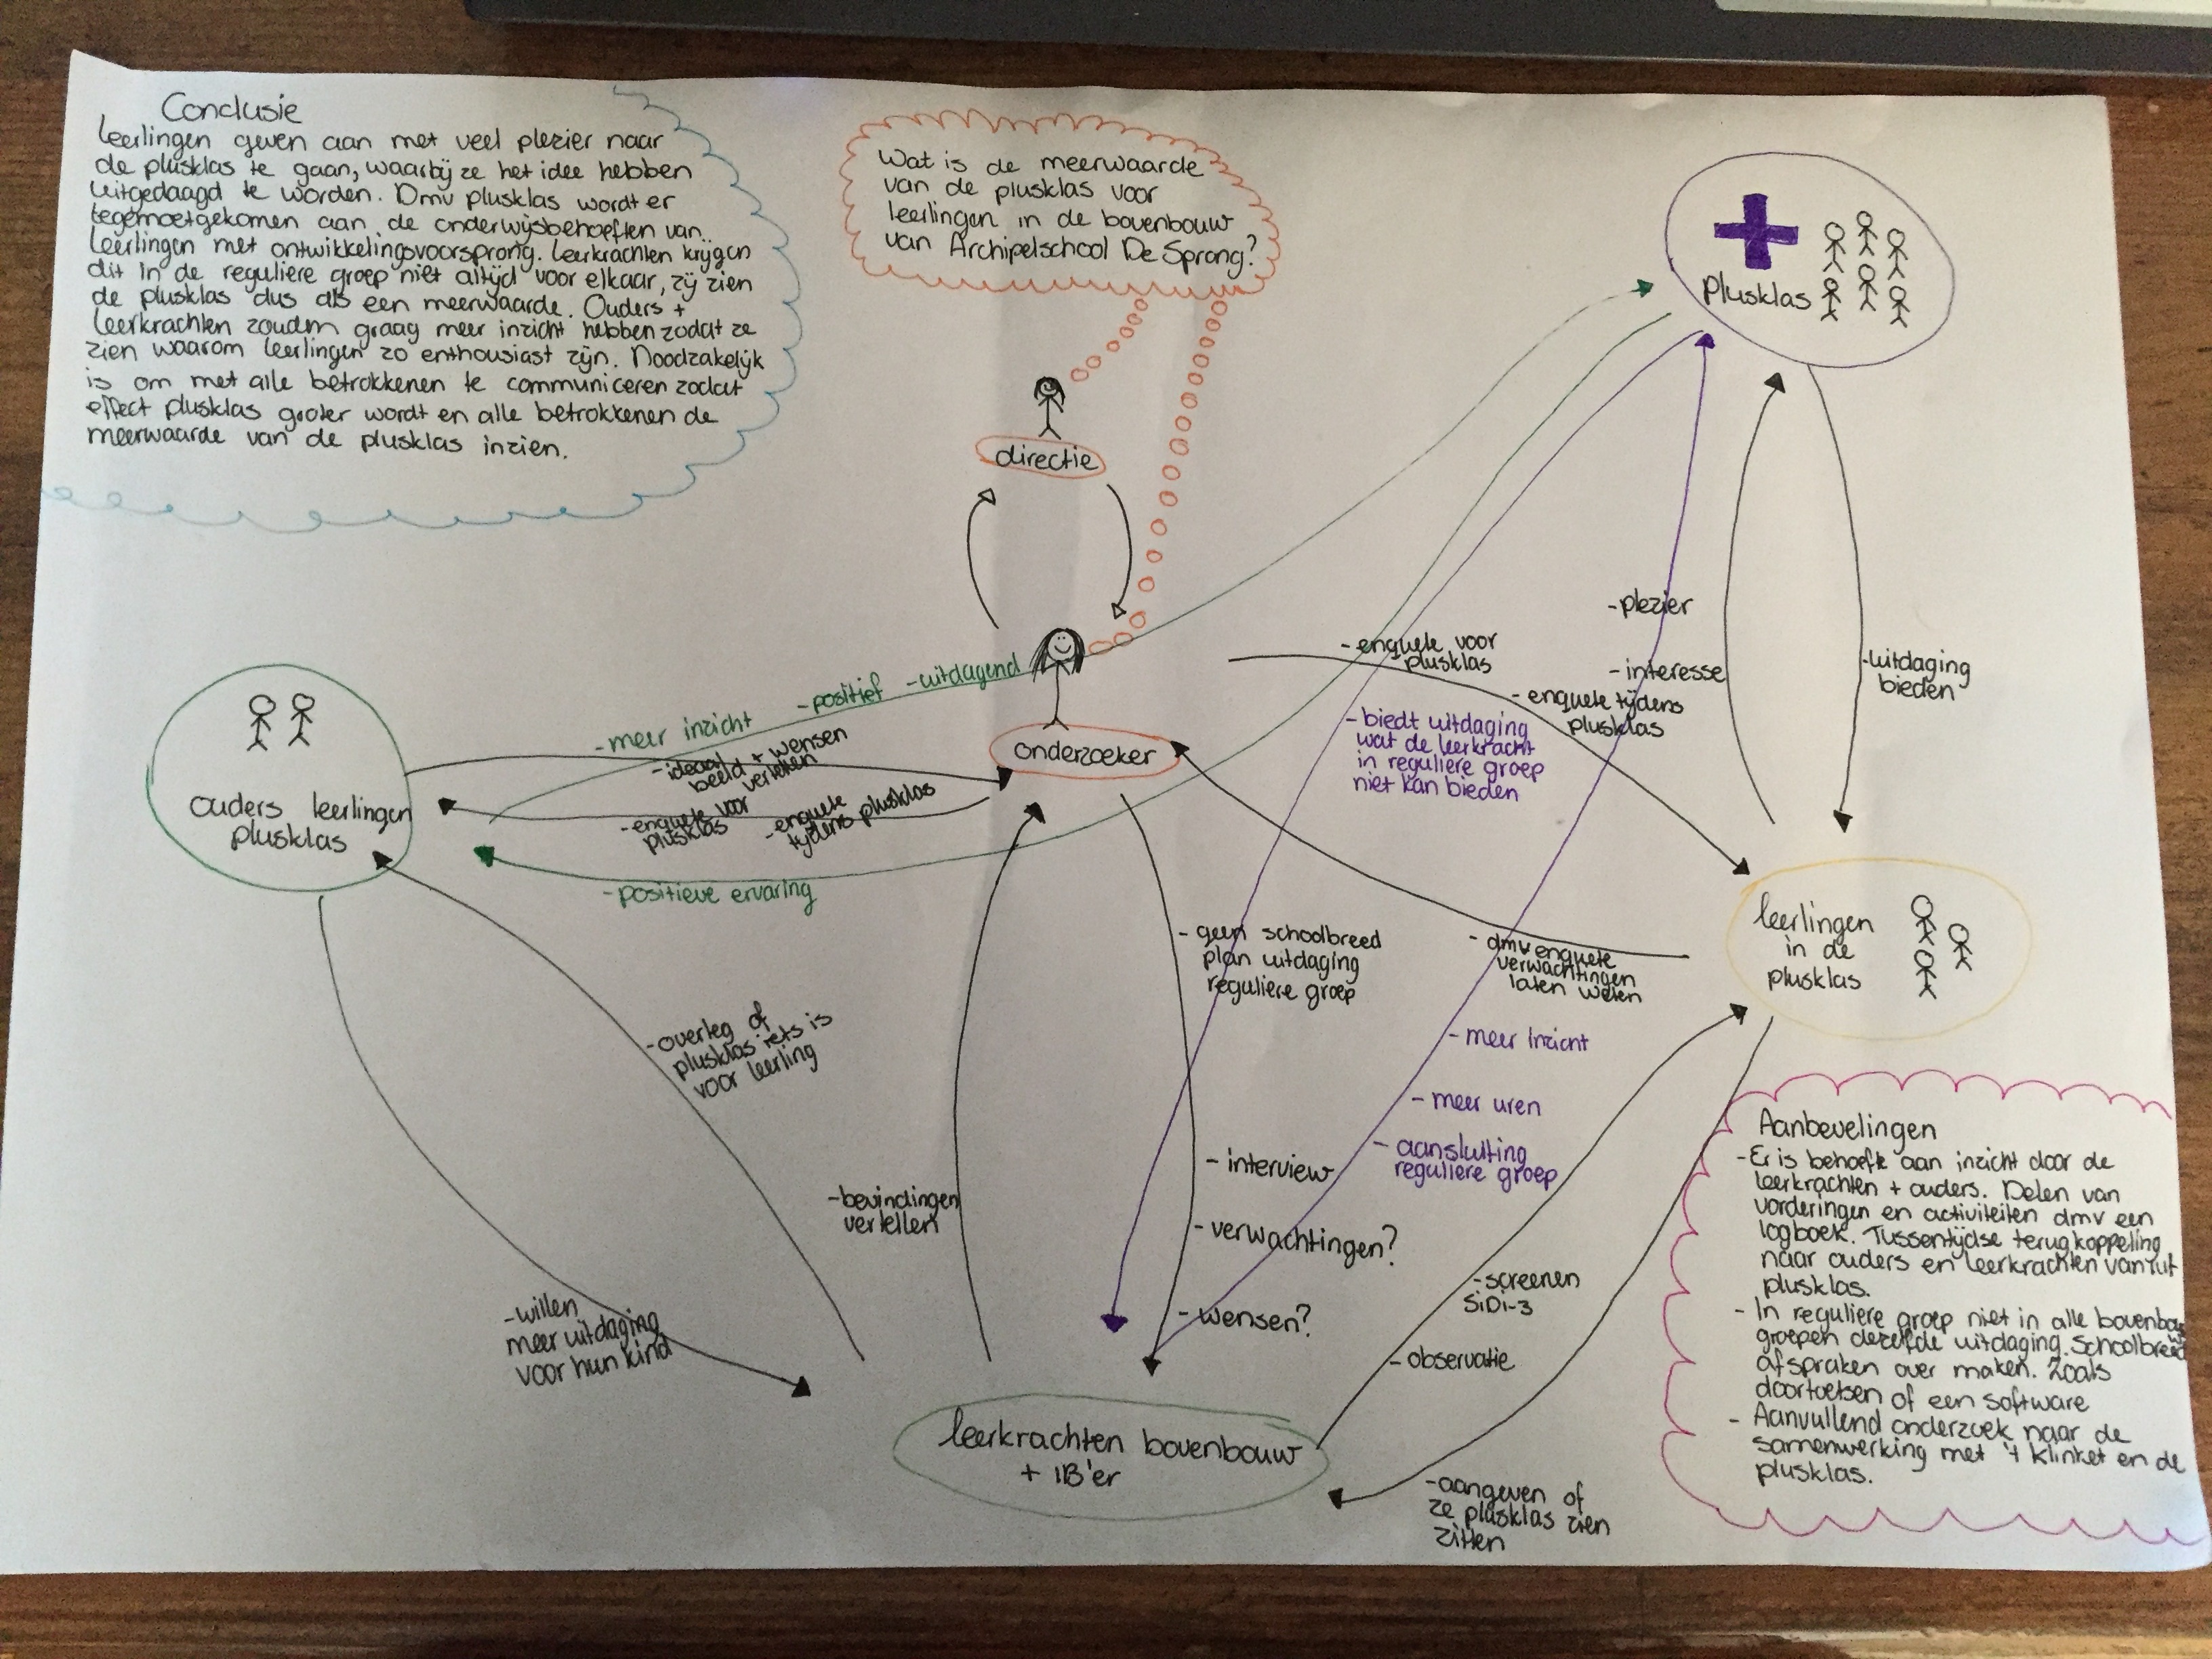 Conclusie
Leerlingen geven aan met veel plezier naar
de plusklas te gaan, waarbij ze het idee hebben
uitgedaagd te worden. Dmv plusklas wordt er
tegemoetgekomen aan de onderwijsbehoeften van
leerlingen met ontwikkelingsvoorsprong. Leerkrachten krijgen
dit in de reguliere groep niet altijd voor elkaar, zij zien
de plusklas dus als een meerwaarde. Ouders +
leerkrachten zouden graag meer inzicht hebben zodat ze
zien waarom leerlingen zo enthousiast zijn. Noodzakelijk
is om met alle betrokkenen te communiceren zodat
effect plusklas groter wordt en alle betrokkenen de
meerwaarde van de plusklas inzien.
Wat is de meerwaarde
van de plusklas voor
leerlingen in de bovenbouw
van Archipelschool De Sprong?
Plusklas
directie
onderzoeker
ouders leerlingen
plusklas
-meer inzicht
-positief
-uitdagend
-ideaal + wensen
beeld vertellen
-enquete voor
plusklas
-enquete
tijdens plusklas
-positieve ervaring
-enquete voor
plusklas
-enquete tijdens
plusklas
-plezier
-interesse
-uitdaging
bieden
-biedt uitdaging
wat de leerkracht
in reguliere groep
niet kan bieden
leerlingen
in de
plusklas
-geen schoolbreed
plan uitdaging
reguliere groep
-dmv enquete
verwachtingen
laten weten
-meer inzicht
-meer uren
-aansluiting
reguliere groep
-overleg of
plusklas iets is
voor leerling
-bevindingen
vertellen
-interview
-verwachtingen?
-wensen?
-screenen
SiDi-3
-observatie
-willen
meer uitdaging
voor hun kind
leerkrachten bovenbouw
+ IB'er
-aangeven of
ze plusklas zien
zitten
Aanbevelingen
-Er is behoefte aan inzicht door de
leerkrachten + ouders. Delen van
vorderingen en activiteiten dmv een
logboek. Tussentijdse terugkoppeling
naar ouders en leerkrachten vanuit
plusklas.
- In reguliere groep niet in alle bovenbouw
groepen dezelfde uitdaging. Schoolbreed
afspraken over maken. Zoals
doortoetsen of een software
- Aanvullend onderzoek naar de
samenwerking met 't Klinket en de
plusklas.